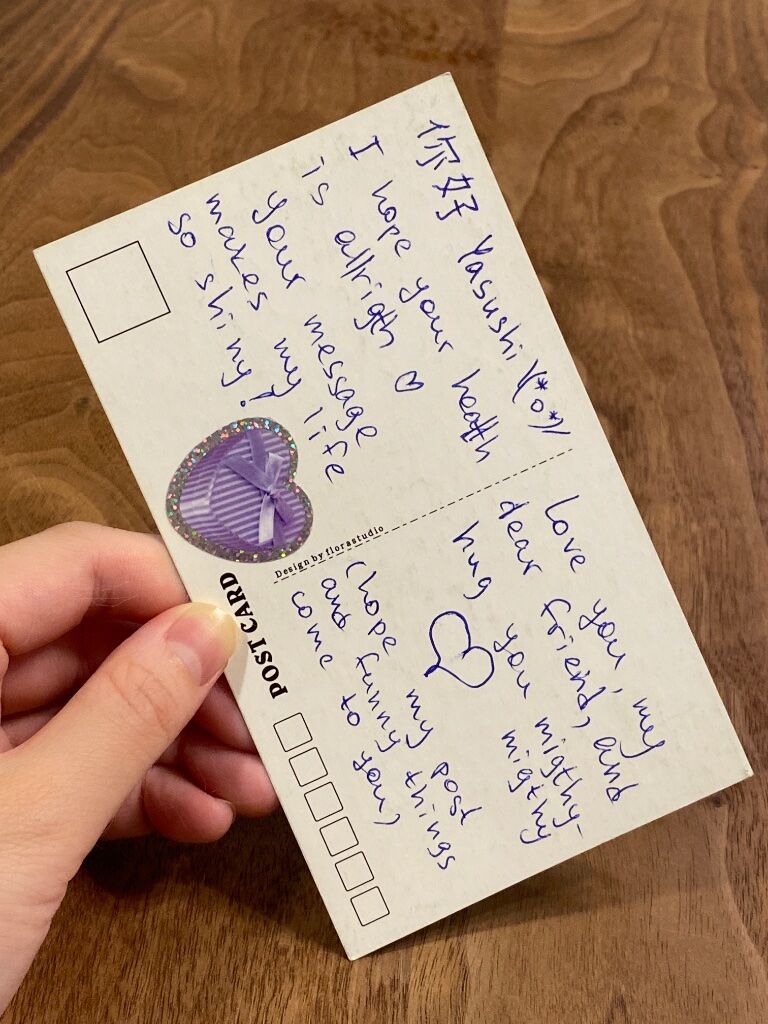 你好 Yasushi \(*o*)/
I hope your health
is allrigth ♡
your message
makes my life
so shiny!
Love you, my
dear friend, and
hug you migthy-
migthy
♡
(hope my post
and funny things
come to you)
Design by florastudio
POST CARD